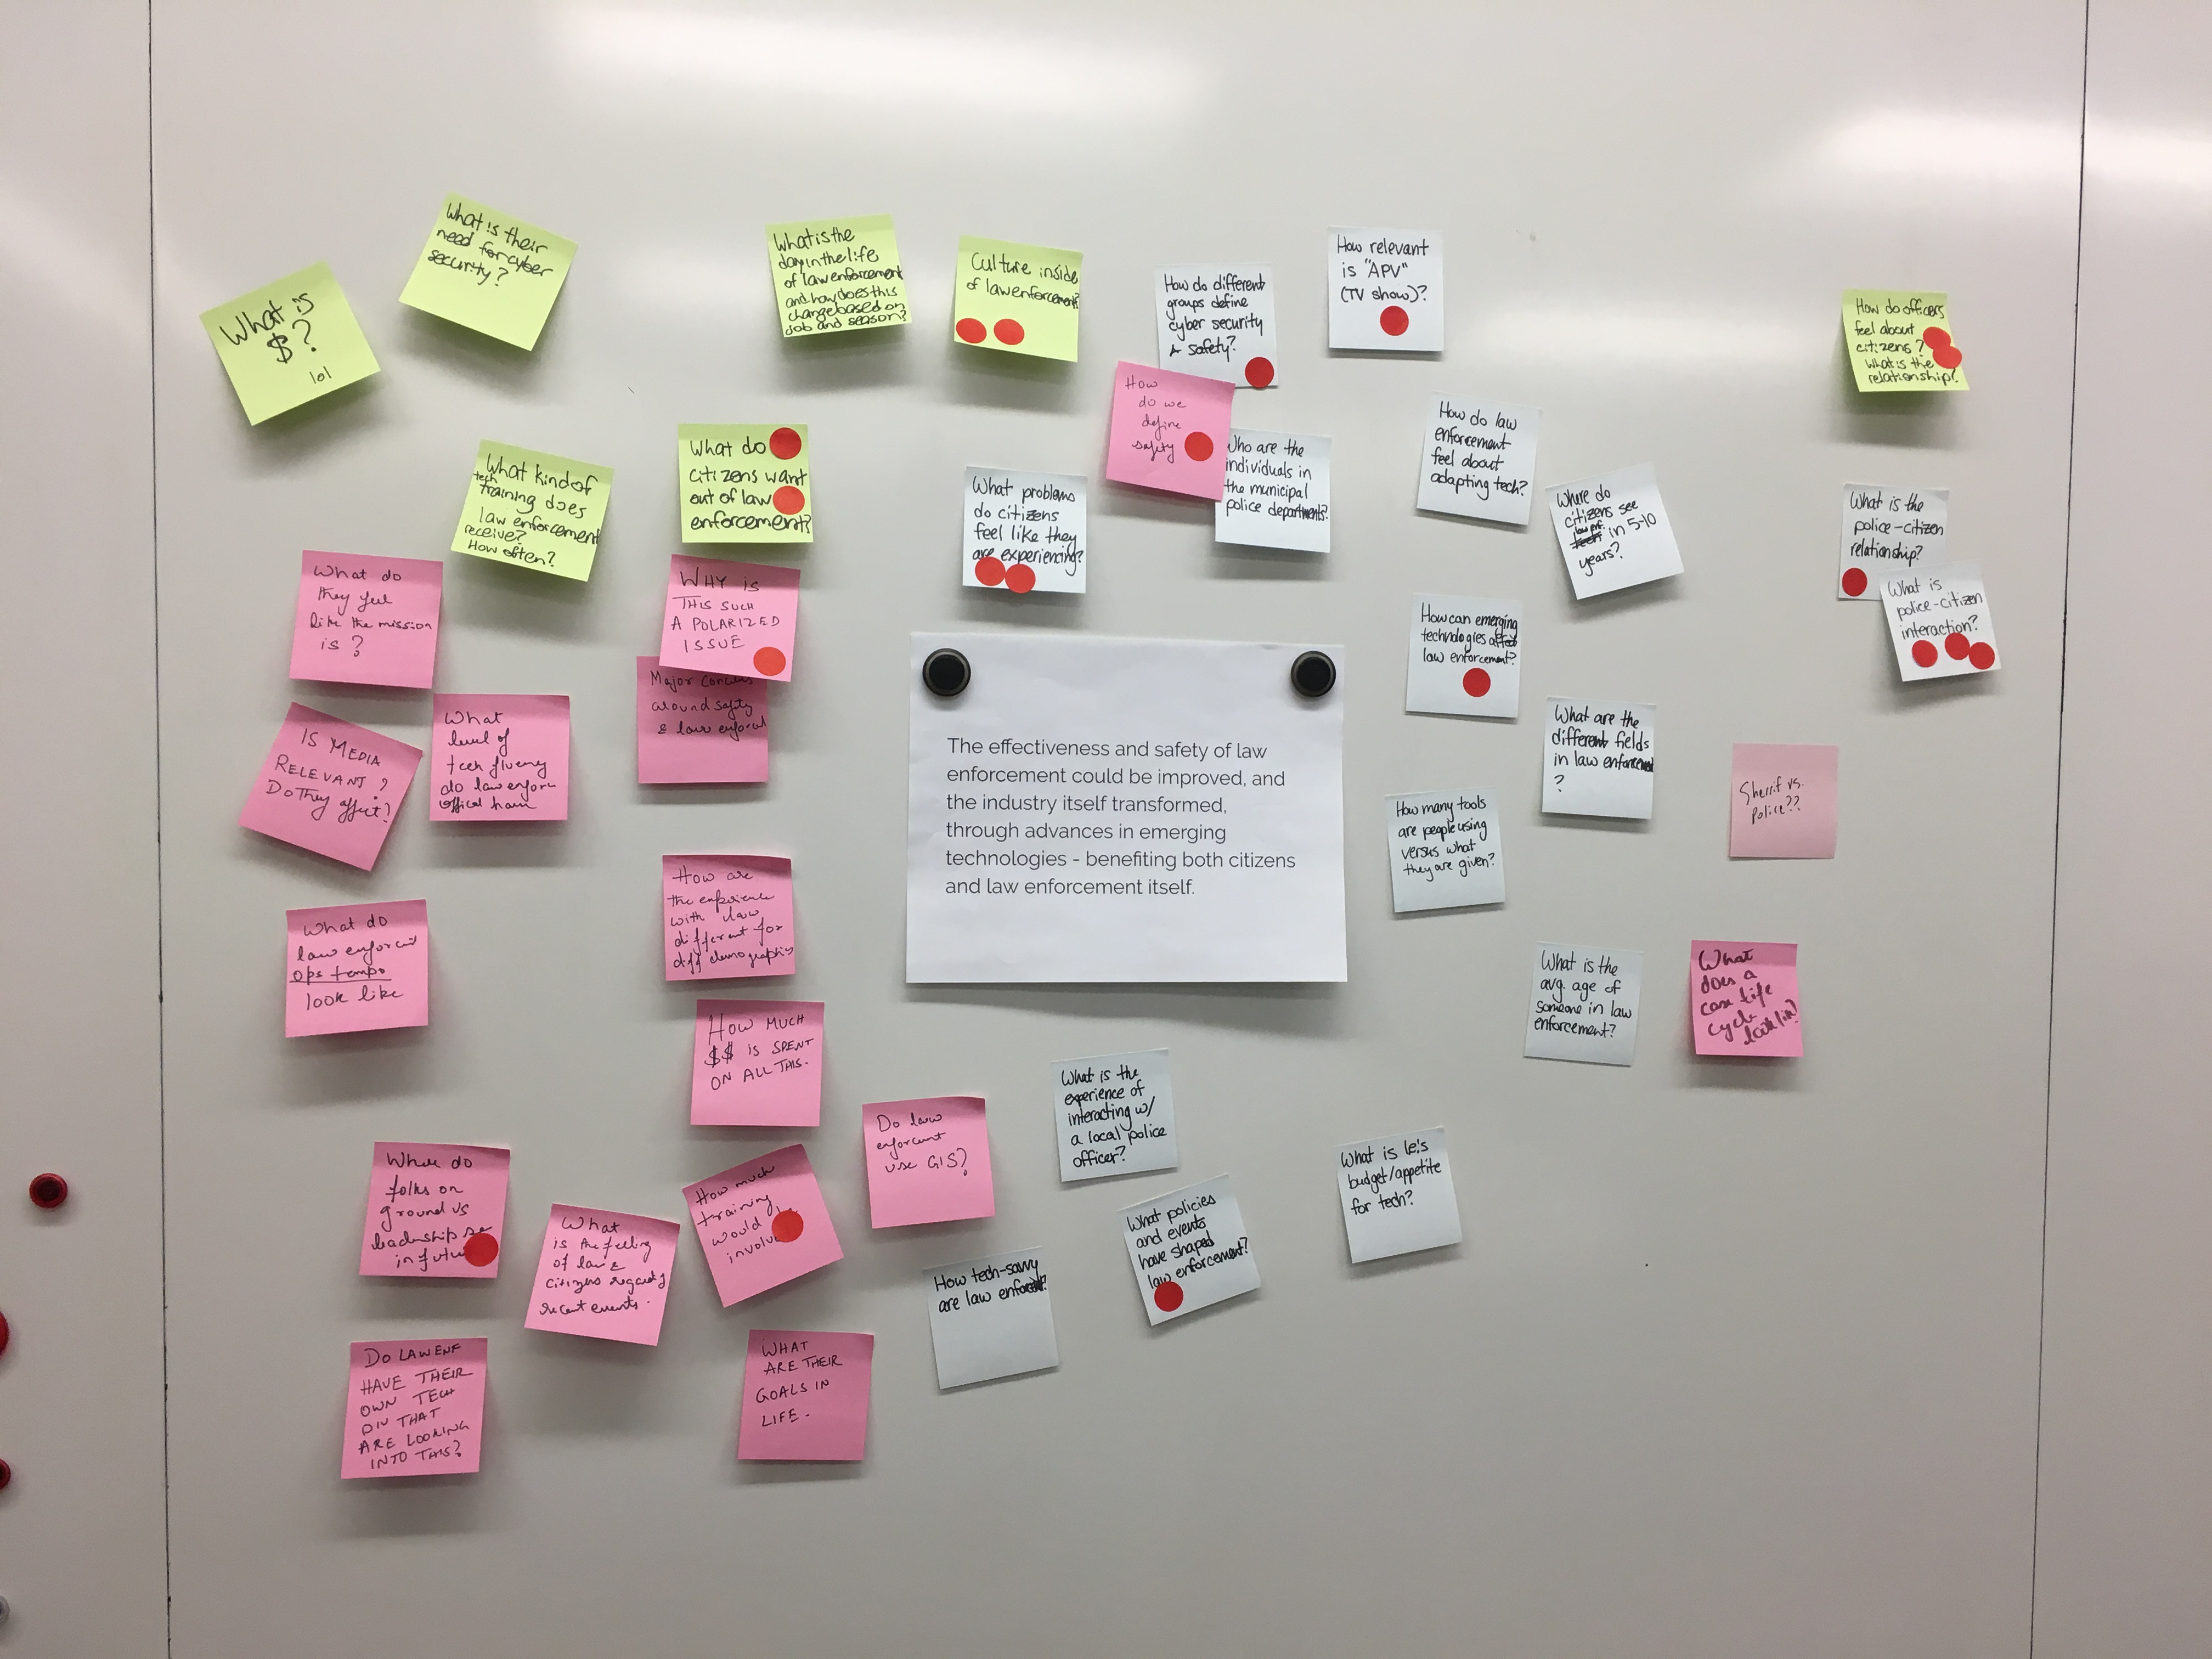 What is
$?
lol
What is their
need for cyber
security?
What is the
day in the life
of law enforcement
and how does this
change based on
job and season?
Culture inside
of law enforcement?
How do different
groups define
cyber security
& safety?
How relevant
is "APV"
(TV show)?
How do officers
feel about
citizens?
What is the
relationship?
What kind of
tech
training does
law enforcement
receive?
How often?
What do
citizens want
out of law
enforcement?
How
do we
define
safety
What problems
do citizens
feel like they
are experiencing?
Who are the
individuals in
the municipal
police departments?
How do law
enforcement
feel about
adapting tech?
Where do
citizens see
law enf.
tech in 5-10
years?
What is the
police-citizen
relationship?
What is
police-citizen
interaction?
What do
they feel
like the mission
is?
WHY IS
THIS SUCH
A POLARIZED
ISSUE
Major
around safety
& law
How can emerging
technologies affect
law enforcement?
IS MEDIA
RELEVANT?
DO They affect?
What
level of
tech fluency
do law enforn
official have
The effectiveness and safety of law
enforcement could be improved, and
the industry itself transformed,
through advances in emerging
technologies - benefiting both citizens
and law enforcement itself.
What are the
different fields
in law enforcement
?
How many tools
are people using
versus what
they are given?
Sherrif vs.
Police??
What do
law
ops tempo
look like
How are
the experience
with law
different for
diff demographics
What is the
avg. age of
someone in law
enforcement?
What
does a
case life
cycle
look like?
HOW MUCH
$$ IS SPENT
ON ALL THIS.
Do law
use GIS?
What is the
experience of
interacting w/
a local police
officer?
What is le's
budget/appetite
for tech?
Where do
folks on
ground vs
leadership se
in
What
is the feeling
of law &
citizens
recent events.
How much
training
would
What policies
and events
have shaped
law enforcement?
How tech-savvy
are law
DO LAW ENF
HAVE THEIR
OWN TECH
DIV THAT
ARE LOOKING
INTO THIS?
WHAT
ARE THEIR
GOALS IN
LIFE.